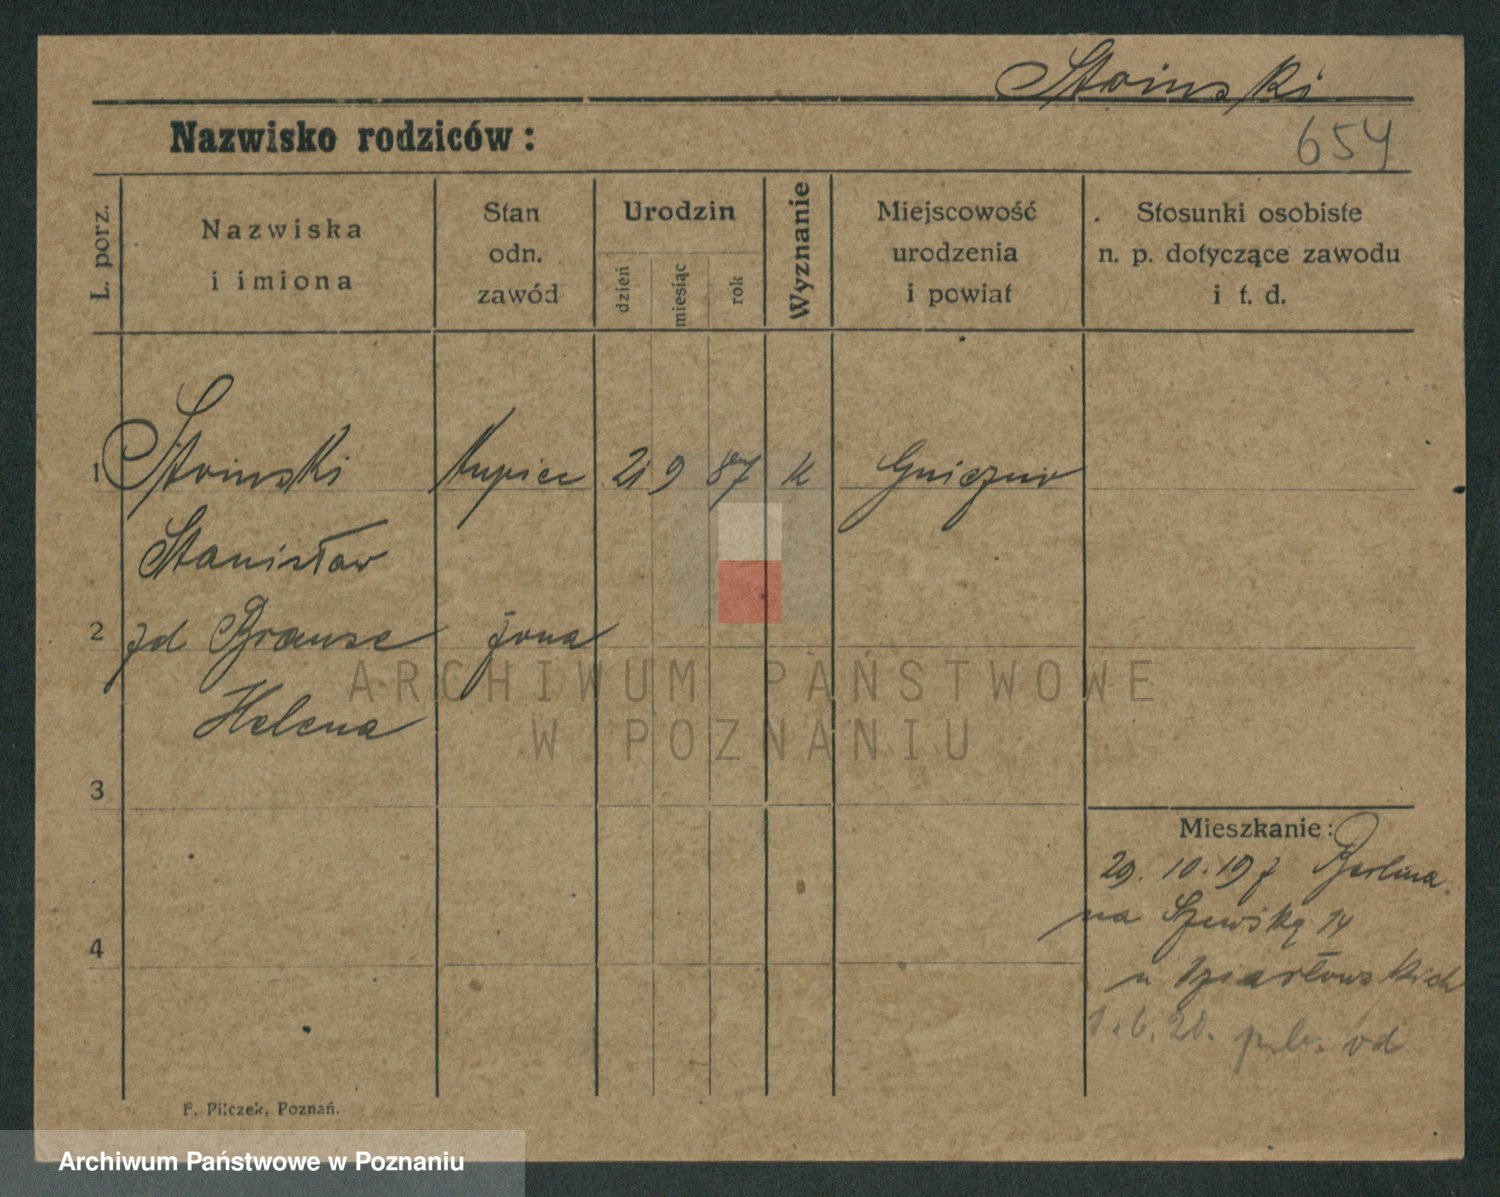 Stoinski
Nazwisko rodziców:
654
L. porz.
Nazwiska
i imiona
Stan
odn.
zawód
Urodzin
dzień
miesiąc
rok
Wyznanie
Miejscowość
urodzenia
i powiat
Stosunki osobiste
n. p. dotyczące zawodu
i t. d.
1 Stoinski kupiec 21 9 87 k Gniezno
Stanisław
2 zd Brause żona
Helena
3
Mieszkanie:
29. 10. 19 z Berlina
na Szewską 14
u
4
1. 6. 20. od
F. Pilczek, Poznań.
ARCHIWUM PAŃSTWOWE
W POZNANIU
Archiwum Państwowe w Poznaniu